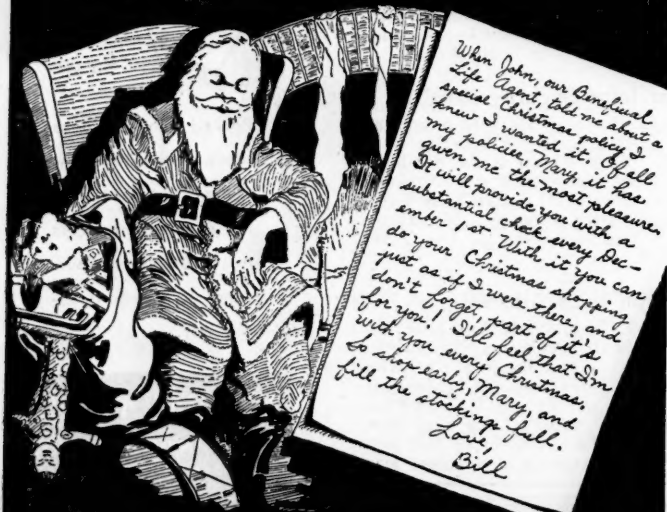 When John, our Beneficial
Life Agent, told me about a
special Christmas policy I
knew I wanted it. Of all
my policies, Mary, it has
given me the most pleasure.
It will provide you with a
substantial check every Dec-
ember 1st. With it you can
do your Christmas shopping
just as if I were there, and
don't forget, part of it's
for you! I'll feel that I'm
with you every Christmas.
So shop early, Mary, and
fill the stockings full.
Love,
Bill